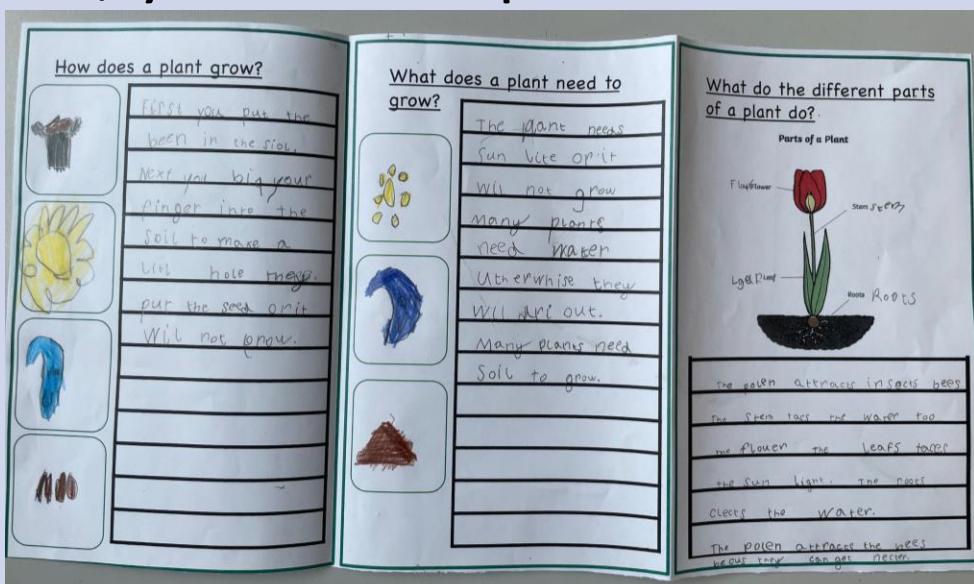 How does a plant grow?
First you put the
been in the siol.
Next you big your
finger into the
soil to make a
litl hole
put the seed or it
wil not grow.
What does a plant need to
grow?
The plant needs
Sun lite or it
wil not grow
Many plants
need water
Utherwhise they
wll dri out.
Many plants need
Soil to grow.
What do the different parts
of a plant do?
Parts of a Plant
flower
Stem Stem
Leaf
Roots Roots
The polen attracts insects bees
The Stem tacs the water too
the flower the leafs taces
the sun light. The roots
clects the water.
The polen attracts the
they can get necter.